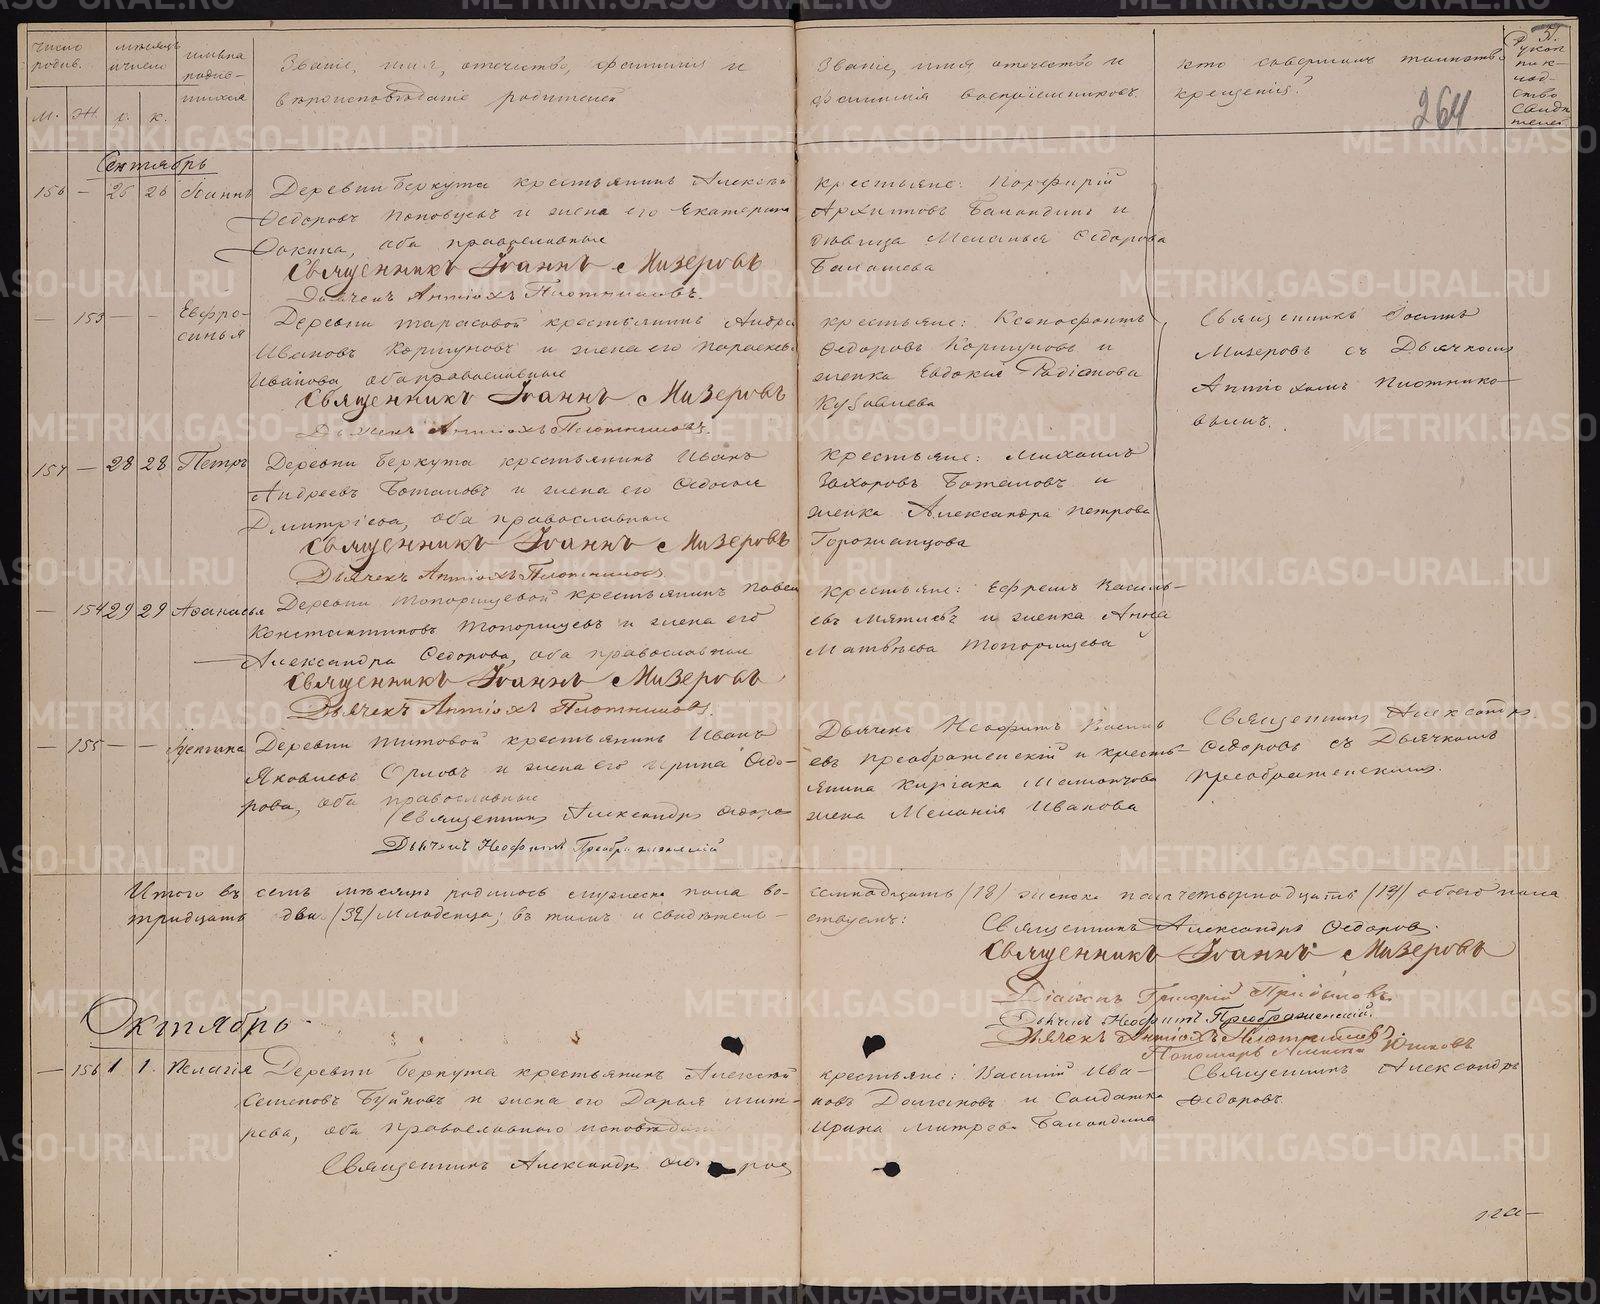 Число родив.
мѣсяцъ и число
имѣна родив-
шихся
Званіе, имя, отечество, фамилія и
вѣроисповѣданіе родителей
Званіе, имя отечество и
фамилія воспріемниковъ.
кто совершалъ таинство
крещенія?
264
М. Ж. р. к.
Сентябрь
156 — 26 26 Іоаннъ Деревни Беркута крестьянинъ Алексѣй
Ѳедоровъ и жена его Екатерина
Фокина, оба православные
Священникъ Іоаннъ Мизеровъ
Дьячекъ Антіохъ Плотниковъ.
крестьяне: Порфирій
Архиповъ Баландинъ и
дѣвица Меланья Ѳедорова
Балашева
— 153 — — Евфро-
синья
Деревни Тарасовой крестьянинъ Андрей
Ивановъ Коршуновъ и жена его Параскева
Иванова, оба православные
Священникъ Іоаннъ Мизеровъ
Дьячекъ Антіохъ Плотниковъ.
крестьяне: Ксенофонтъ
Ѳедоровъ Коршуновъ и
женка Евдокия Радіонова
Священникъ Іоаннъ
Мизеровъ съ Дьячкомъ
Антіохомъ Плотнико-
вымъ.
157 — 28 28 Петръ Деревни Беркута крестьянинъ Иванъ
Андреевъ Боталовъ и жена его
Дмитріева, оба православные
Священникъ Іоаннъ Мизеровъ
Дьячекъ Антіохъ Плотниковъ
крестьяне: Михаилъ
Захаровъ Боталовъ и
женка Александра Петрова
— 154 29 29 Афанасья Деревни Топорищевой крестьянинъ Павелъ
Константиновъ Топорищевъ и жена его
Александра Ѳедорова, оба православные
Священникъ Іоаннъ Мизеровъ
Дьячекъ Антіохъ Плотниковъ.
крестьяне: Ефремъ Василь-
евъ и женка Анна
Матвѣева Топорищева
— 155 — — Деревни Титовой крестьянинъ Иванъ
Яковлевъ Орловъ и жена его Ирина Ѳедо-
рова, оба православные
Священникъ Александръ Ѳедоровъ
Дьячекъ Неофитъ Преображенскій
Дьячекъ Неофитъ Василь
евъ Преображенскій и кресть-
янина
жена Меланія Иванова
Священникъ Александръ
Ѳедоровъ съ Дьячкомъ
Преображенскимъ.
Итого въ семъ мѣсяцѣ родилось мужеска пола во-
семнадцать /18/ женска пола четырнадцать /14/ обоего пола
тридцать два /32/ младенца; въ томъ и свидѣтель-
ствуемъ:
Священникъ Александръ Ѳедоровъ.
Священникъ Іоаннъ Мизеровъ
Діаконъ Григорій
Дьячекъ Неофитъ Преображенскій.
Дьячекъ Антіохъ Плотниковъ.
Пономарь Юшковъ
Октябрь
— 156 1 1. Пелагія Деревни Беркута крестьянинъ Алексѣй
Семеновъ Буйновъ и жена его Дарья Мит-
рева, оба православнаго исповѣданія
Священникъ Александръ Ѳедоровъ
крестьяне: Василій Ива-
новъ и Солдатка
Ирина Митрева Баландина
Священникъ Александръ
Ѳедоровъ.
METRIKI.GASO-URAL.RU